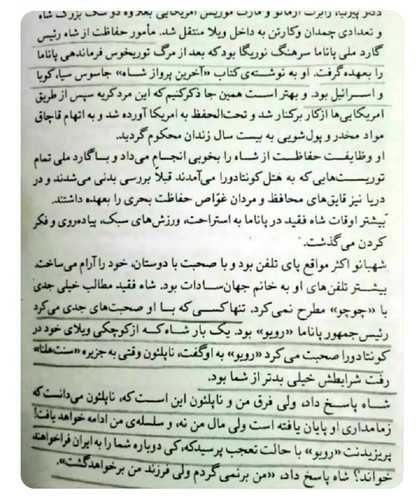 دکتر پیرنیا، رابرت آرمائو و مارک موریس آمریکایی بعلاوه دو سگ بزرگ شاه
و تعدادی چمدان و کارتن به داخل ویلا منتقل شد. مأمور حفاظت از شاه رئیس
گارد ملی پاناما سرهنگ نوریگا بود که بعد از مرگ توریخوس فرماندهی پاناما
را بعهده گرفت. او به نوشته‌ی کتاب «آخرین پرواز شاه» جاسوس سیا، کوبا
و اسرائیل بود. و بهتر است همین جا ذکر کنیم که این مرد کریه سپس از طریق
امریکایی‌ها از کار برکنار شد و تحت‌الحفظ به امریکا آورده شد و به اتهام قاچاق
مواد مخدر و پول‌شویی به بیست سال زندان محکوم گردید.
او وظایفت حفاظت از شاه را بخوبی انجام می‌داد و با گارد ملی تمام
توریست‌هایی که به هتل کونتادورا می‌آمدند قبلاً بررسی بدنی می‌شدند و در
دریا نیز قایق‌های محافظ و مردان غوّاص حفاظت بحری را بعهده داشتند.
بیشتر اوقات شاه فقید در پاناما به استراحت، ورزش‌های سبک، پیاده‌روی و فکر
کردن می‌گذشت.
شهبانو اکثر مواقع پای تلفن بود و با صحبت با دوستان، خود را آرام می‌ساخت.
بیشتر تلفن‌های او به خانم جهان‌سادات بود. شاه فقید مطالب خیلی جدی
با «چوچو» مطرح نمی‌کرد. تنها کسی که با او صحبت‌های جدی می‌کرد
رئیس جمهور پاناما «رویو» بود. یک بار شاه که از کوچکی ویلای خود در
کونتادورا صحبت می‌کرد «رویو» به او گفت، ناپلئون وقتی به جزیره «سنت‌هلنا»
رفت شرایطش خیلی بدتر از شما بود.
شاه پاسخ داد، ولی فرق من و ناپلئون این است که، ناپلئون می‌دانست که
زمامداری او پایان یافته است ولی مال من نه، و سلسله‌ی من ادامه خواهد یافت!
پریزیدنت «رویو» با حالت تعجب پرسید که، کی دوباره شما را به ایران فراخواهند
خواند؟ شاه پاسخ داد، «من برنمی‌گردم ولی فرزند من برخواهد گشت».